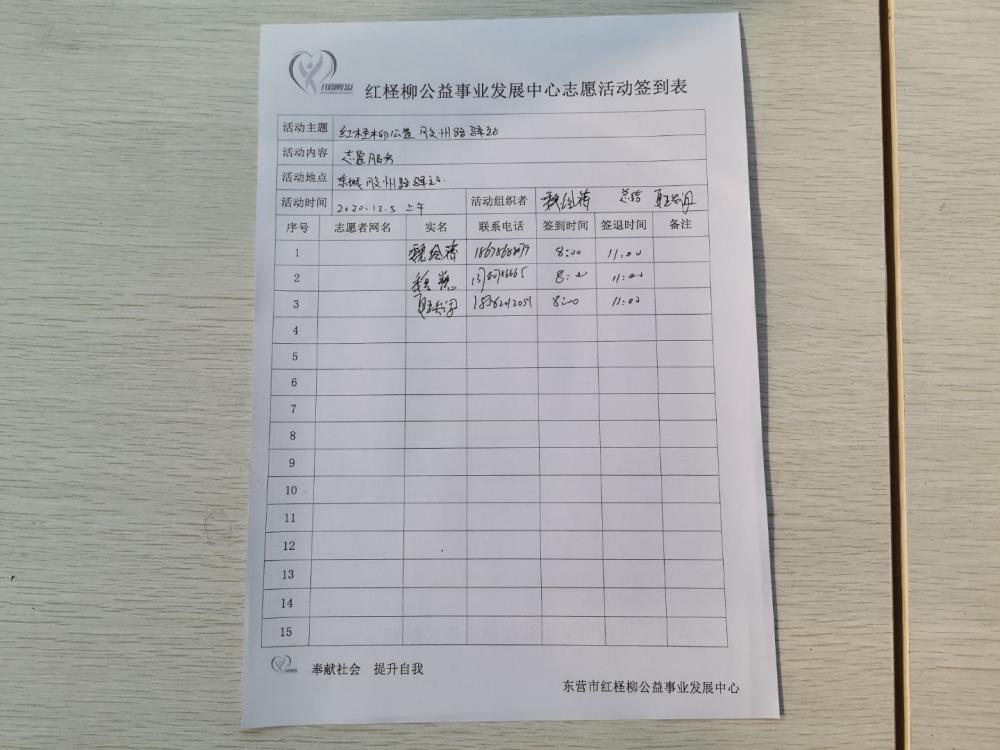 红柽柳公益事业发展中心志愿活动签到表
活动主题 红柽柳公益 胶州路驿站
活动内容 志愿服务
活动地点 东城胶州路驿站.
活动时间 2020.12.5 上午 活动组织者 总结
序号 志愿者网名 实名 联系电话 签到时间 签退时间 备注
1 8:00 11:00
2 8:00 11:00
3 8:00 11:00
4
5
6
7
8
9
10
11
12
13
14
15
奉献社会 提升自我
东营市红柽柳公益事业发展中心